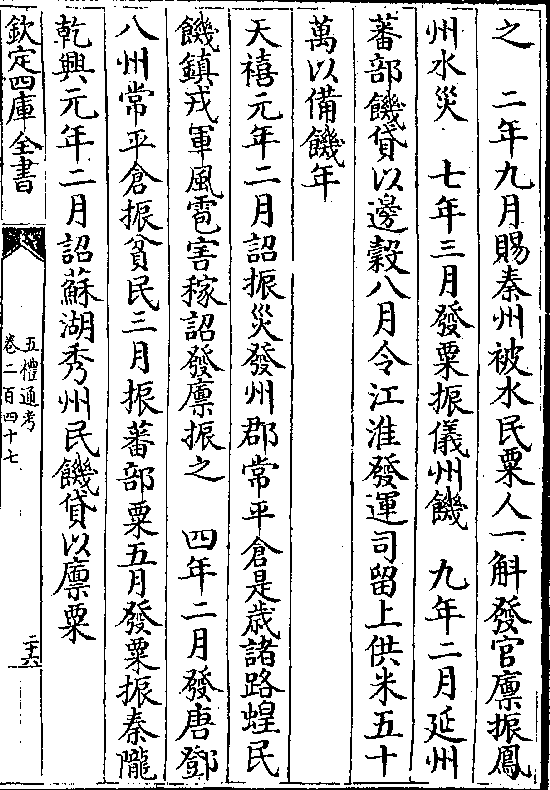 之　二年九月賜秦州被水民粟人一斛發官廪振鳳
州水災　七年三月發粟振儀州饑　九年二月延州
蕃部饑貸以邊穀八月令江淮發運司留上供米五十
萬以備饑年
天禧元年二月詔振災發州郡常平倉是歳諸路蝗民
饑鎮戎軍風雹害稼詔發廪振之　四年二月發唐鄧
八州常平倉振貧民三月振蕃部粟五月發粟振秦隴
乾興元年二月詔蘇湖秀州民饑貸以廪粟
欽定四庫全書
五禮通考
卷二百四十七
二十六